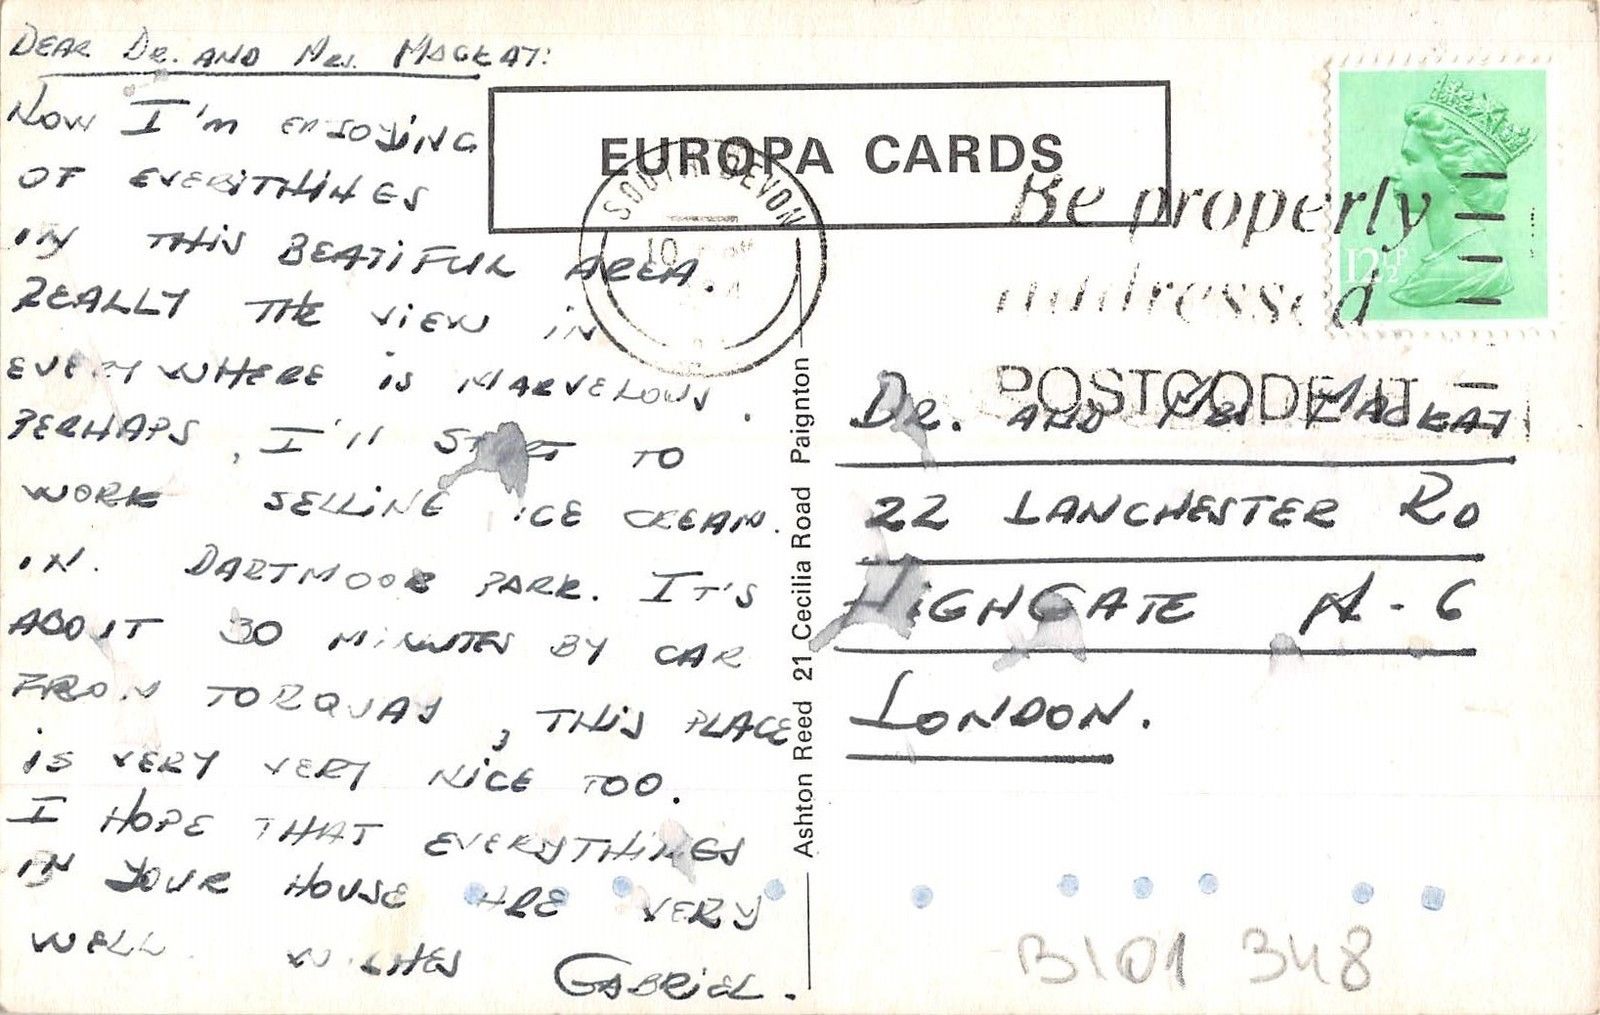 DEAR DR. AND MRS. MACKAY:
NOW I'm ENJOYING
OF EVERITHINGS
IN THIS BEATIFUL AREA.
REALLY THE VIEW IN
EVERYWHERE IS MARVELOUS.
PERHAPS, I'll START TO
WORK SELLING ICE CREAM.
IN. DARTMOOR PARK. IT'S
ABOUT 30 MINUTES BY CAR
FROM TORQUAY, THIS PLACE
IS VERY VERY NICE TOO.
I HOPE THAT EVERYTHINGS
IN YOUR HOUSE ARE VERY
WELL. WISHES GABRIEL.
EUROPA CARDS
SOUTH DEVON
10
Be properly
addressed
POSTCODE IT
12½P
Ashton Reed 21 Cecilia Road Paignton
DR. AND MRS MACKAY
22 LANCHESTER RD
HIGHGATE N-6
LONDON.
B101 348